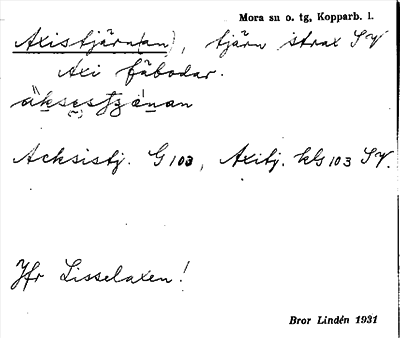 Mora sn o. tg, Kopparb. l.
Axistjärn(an), tjärn strax SV
Axi fäbodar.
äksestjä́nan
Acksistj. G 103, Axitj. kls 103 SV.
Jfr Lisselaxen!
Bror Lindén 1931